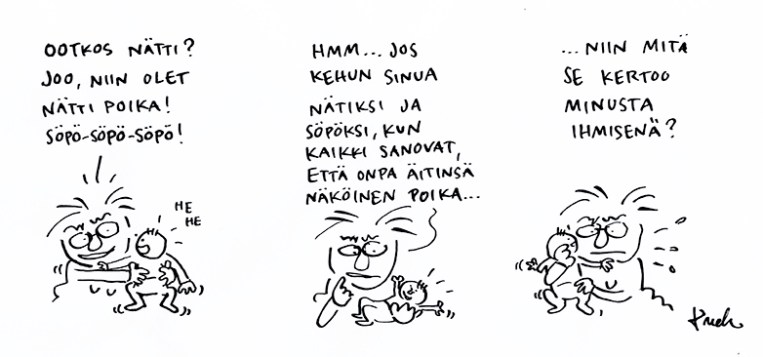 OOTKOS NÄTTI?
JOO, NIIN OLET
NÄTTI POIKA!
SÖPÖ-SÖPÖ-SÖPÖ!
HE
HE
HMM... JOS
KEHUN SINUA
NÄTIKSI JA
SÖPÖKSI, KUN
KAIKKI SANOVAT,
ETTÄ ONPA ÄITINSÄ
NÄKÖINEN POIKA...
...NIIN MITÄ
SE KERTOO
MINUSTA
IHMISENÄ?